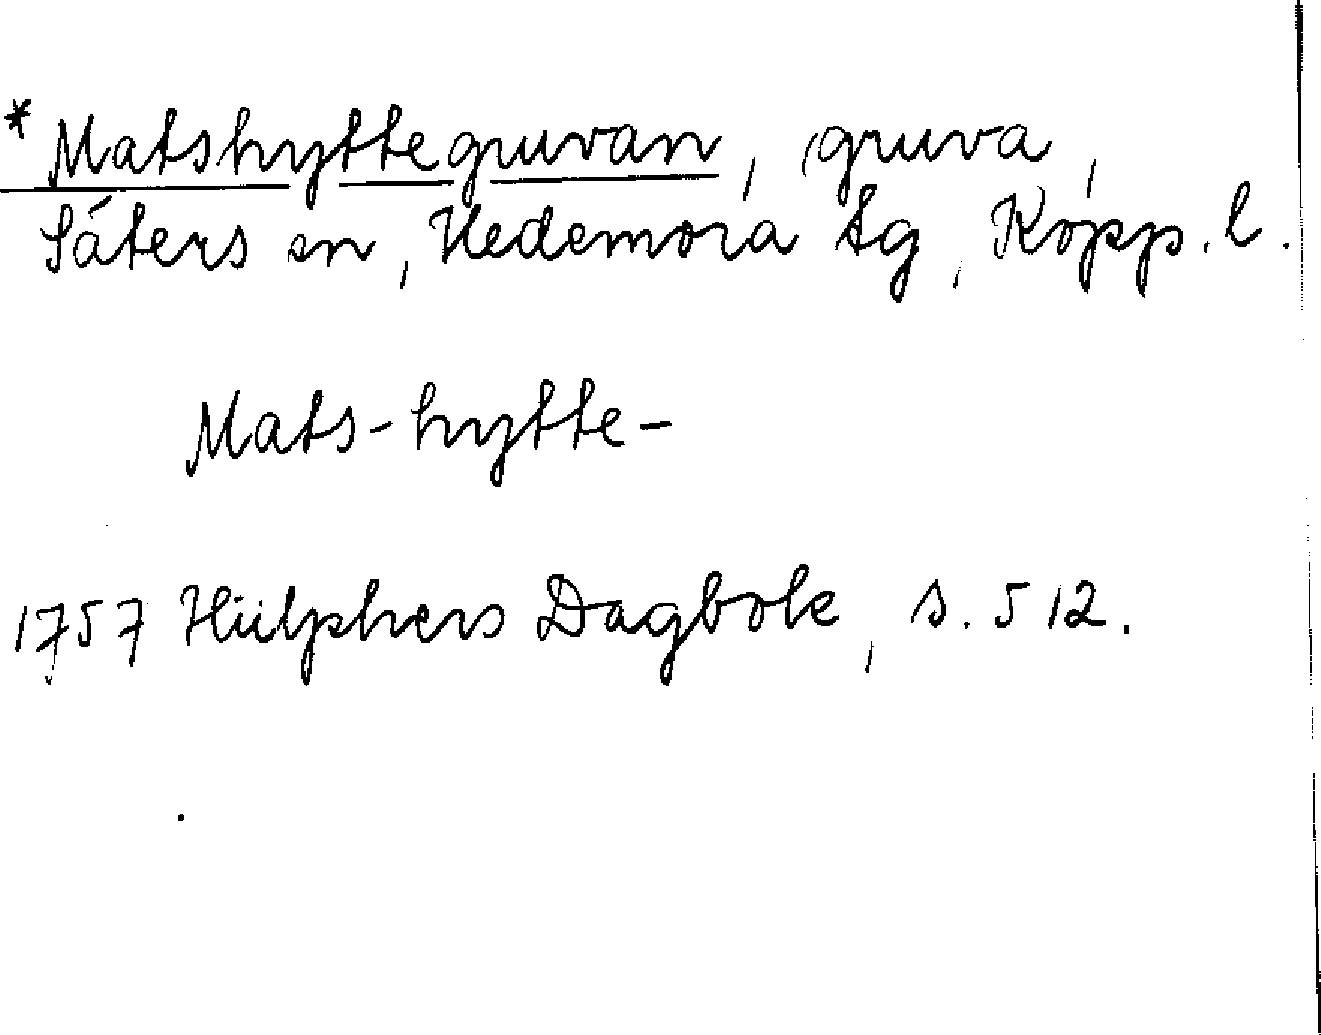 *Matshyttegruvan, gruva,
Säters sn, Hedemora tg, Kopp. l.
Mats-hytte-
1757 Hülphers Dagbok, s. 512.